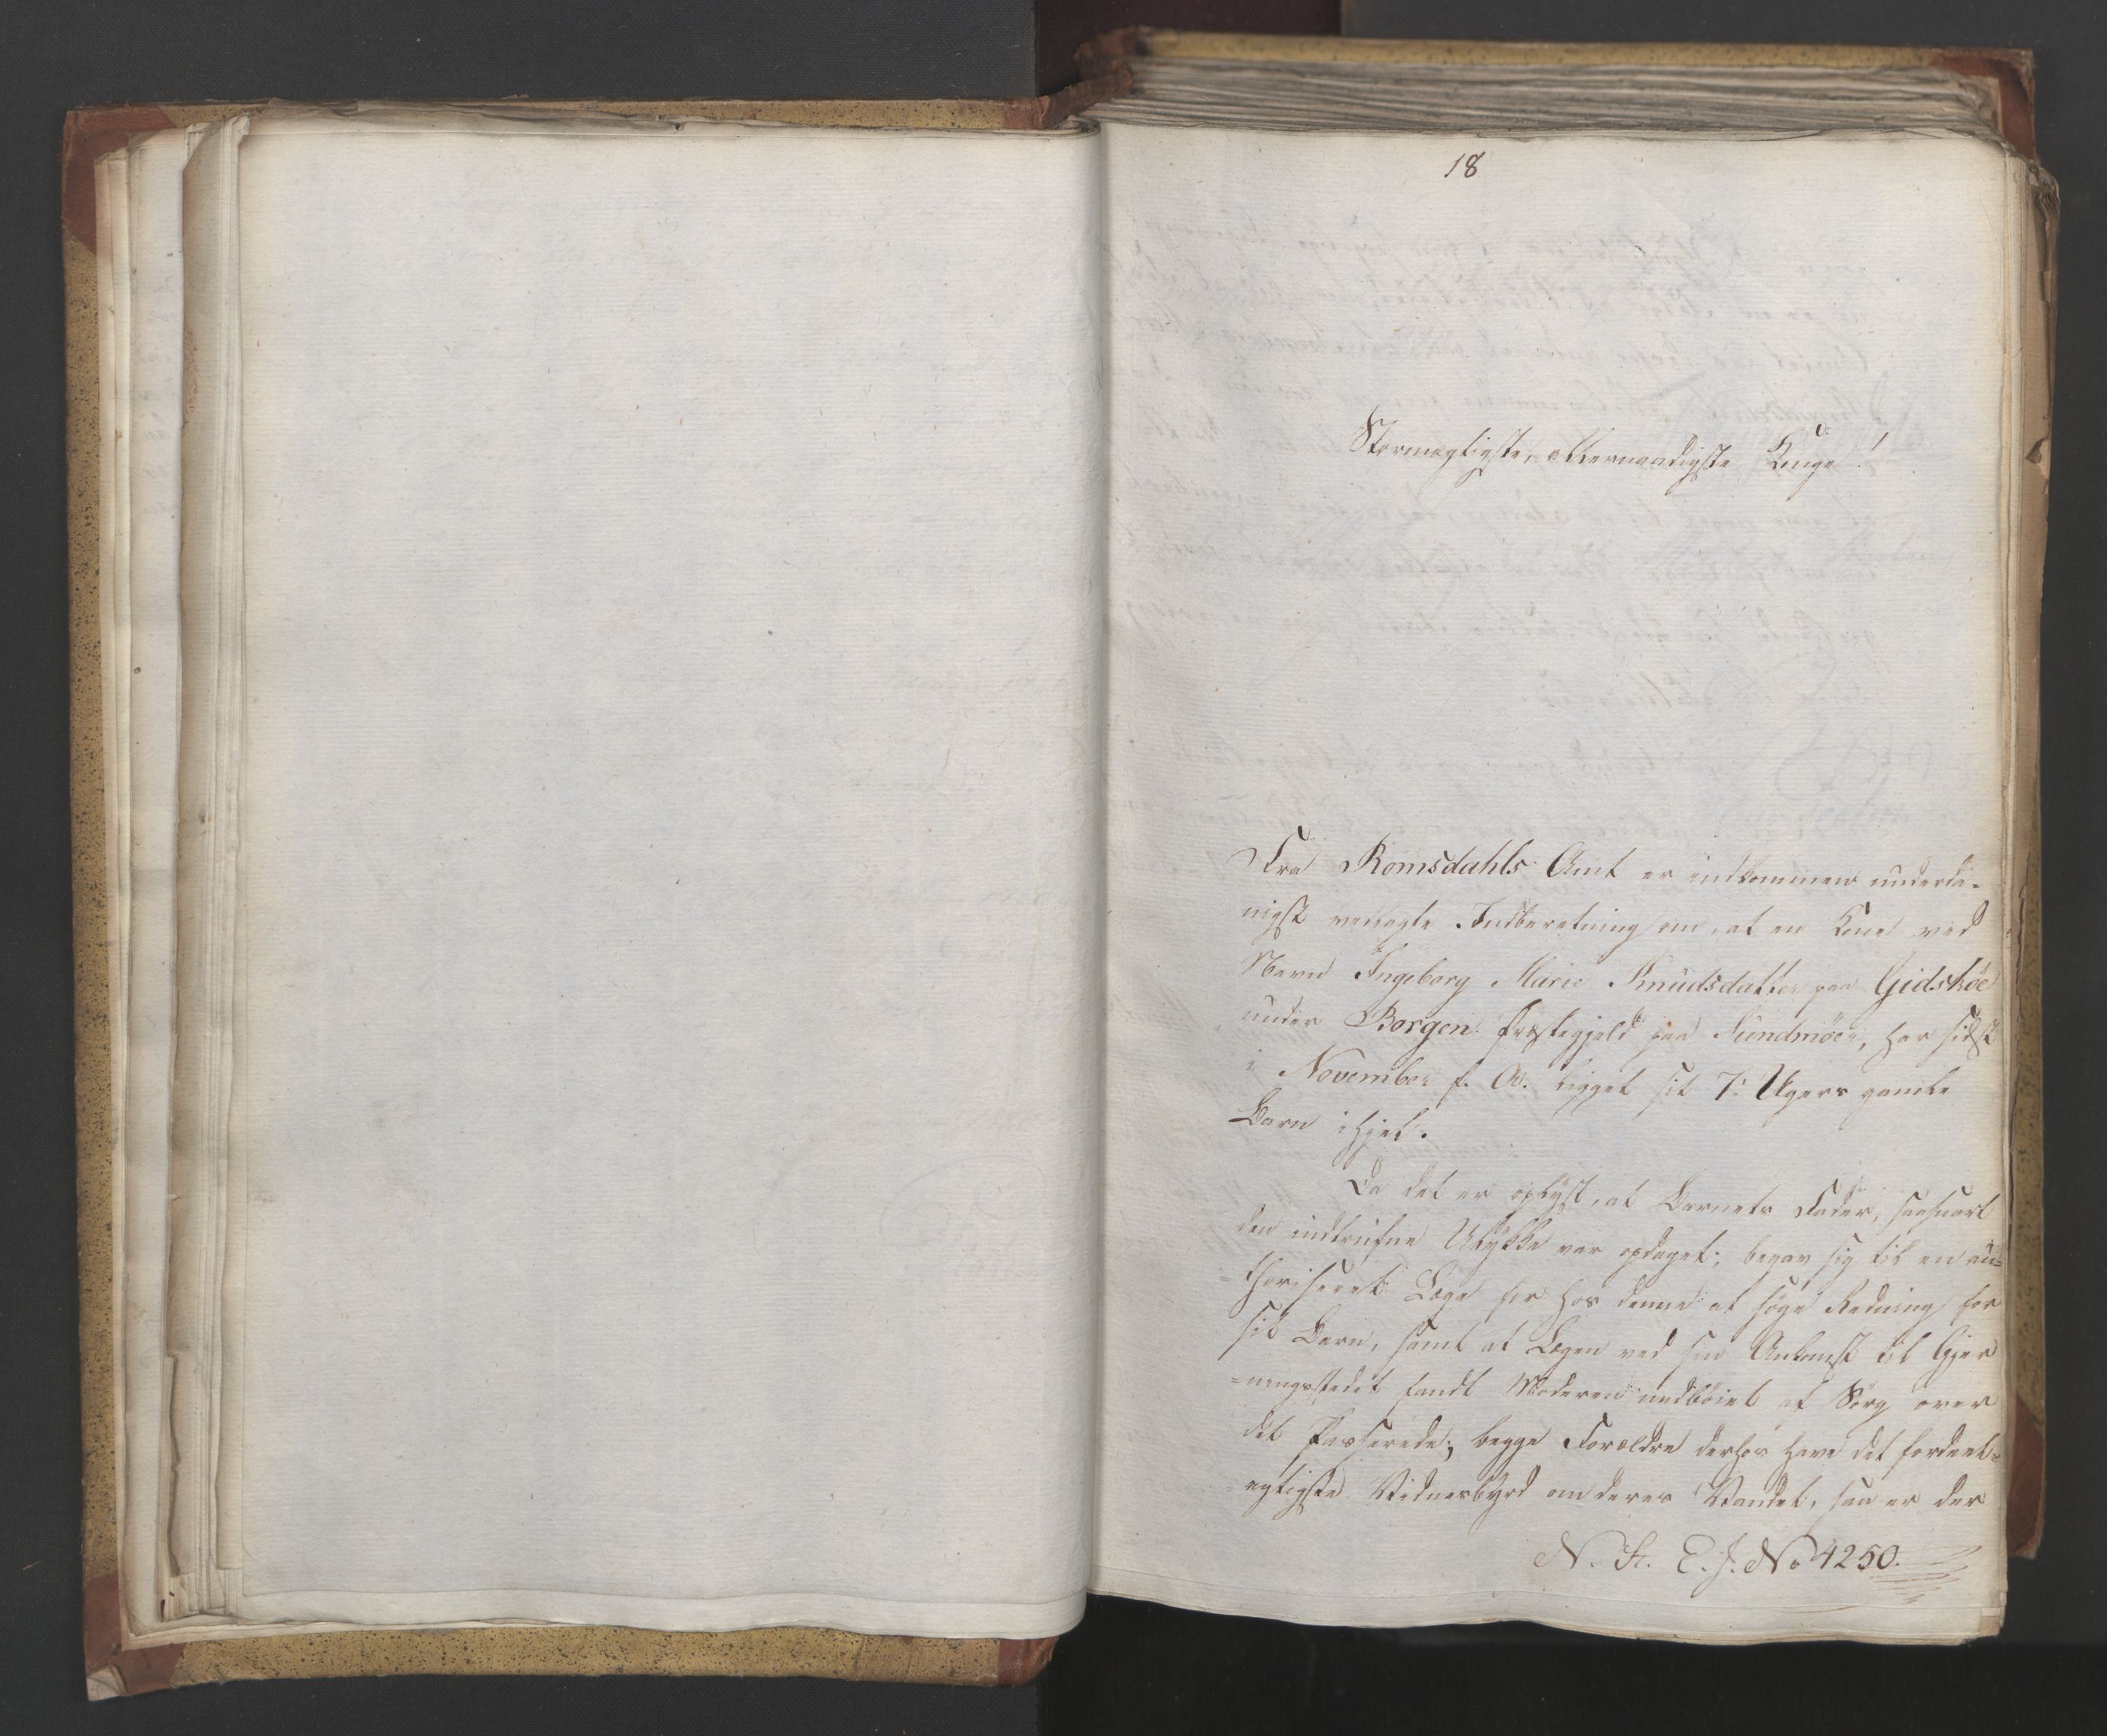 18
Stormægtigste, allernaadigste Konge!
Fra Romsdahls Amt er indkommen underda-
nigst vedlagte Indberetning om, at en Kone ved
Navn Ingeborg Marie Knudsdatter paa Gidskøe
under Borgen Præstegjeld paa Sundmøer, har sidst
i November f. A. ligget sit 7 Ugers gamle
Barn ihjel.
Da det er oplyst, at Barnets Fader, saasnart
den indtrufne Ulykke var opdaget, begav sig til en au-
=thoriseret Læge for hos denne at søge Redning for
sit Barn, samt at Lægen ved sin Ankomst til Gjer
=ningsstedet fandt Moderen nedbøiet af Sorg over
det Passerede, begge Forældre derhos have det fordeel-
agtigste Vidnesbyrd om deres Vandel, saa er der
N. St. E. J. No 4250.